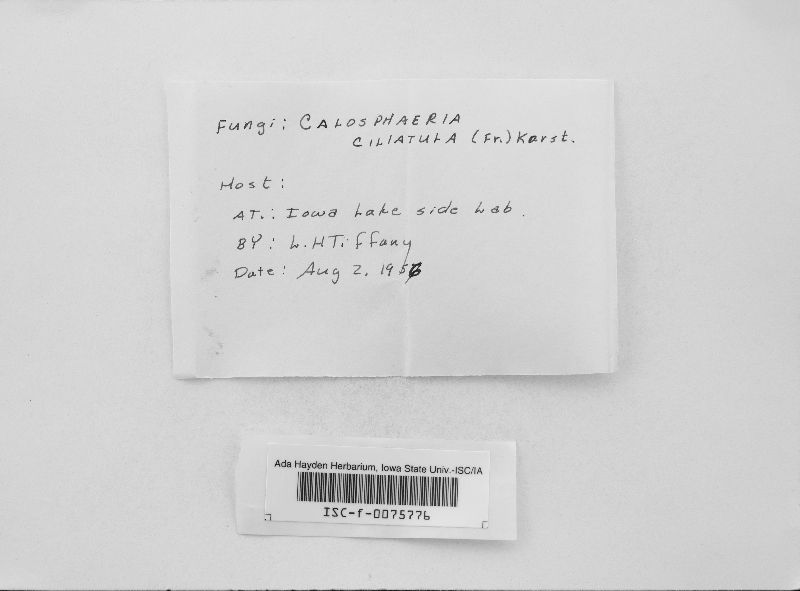 Fungi: CALOSPHAERIA
CILIATULA (Fr.) Karst.
Host:
AT.: Iowa Lake side Lab.
BY: L.H Tiffany
Date: Aug 2, 1956
Ada Hayden Herbarium, Iowa State Univ.-ISC/IA
ISC-f-0075776